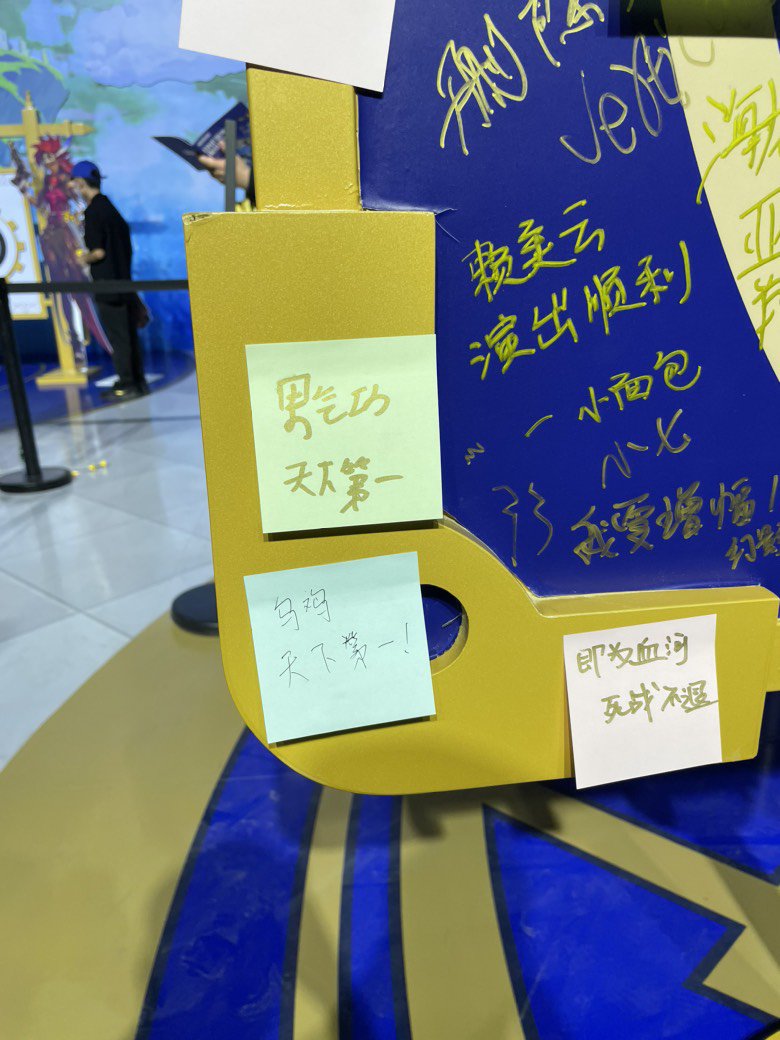 赖美云
演出顺利
一小面包
小七
我要增幅！
男气功
天下第一
乌鸡
天下第一！
即为血河
死战不退